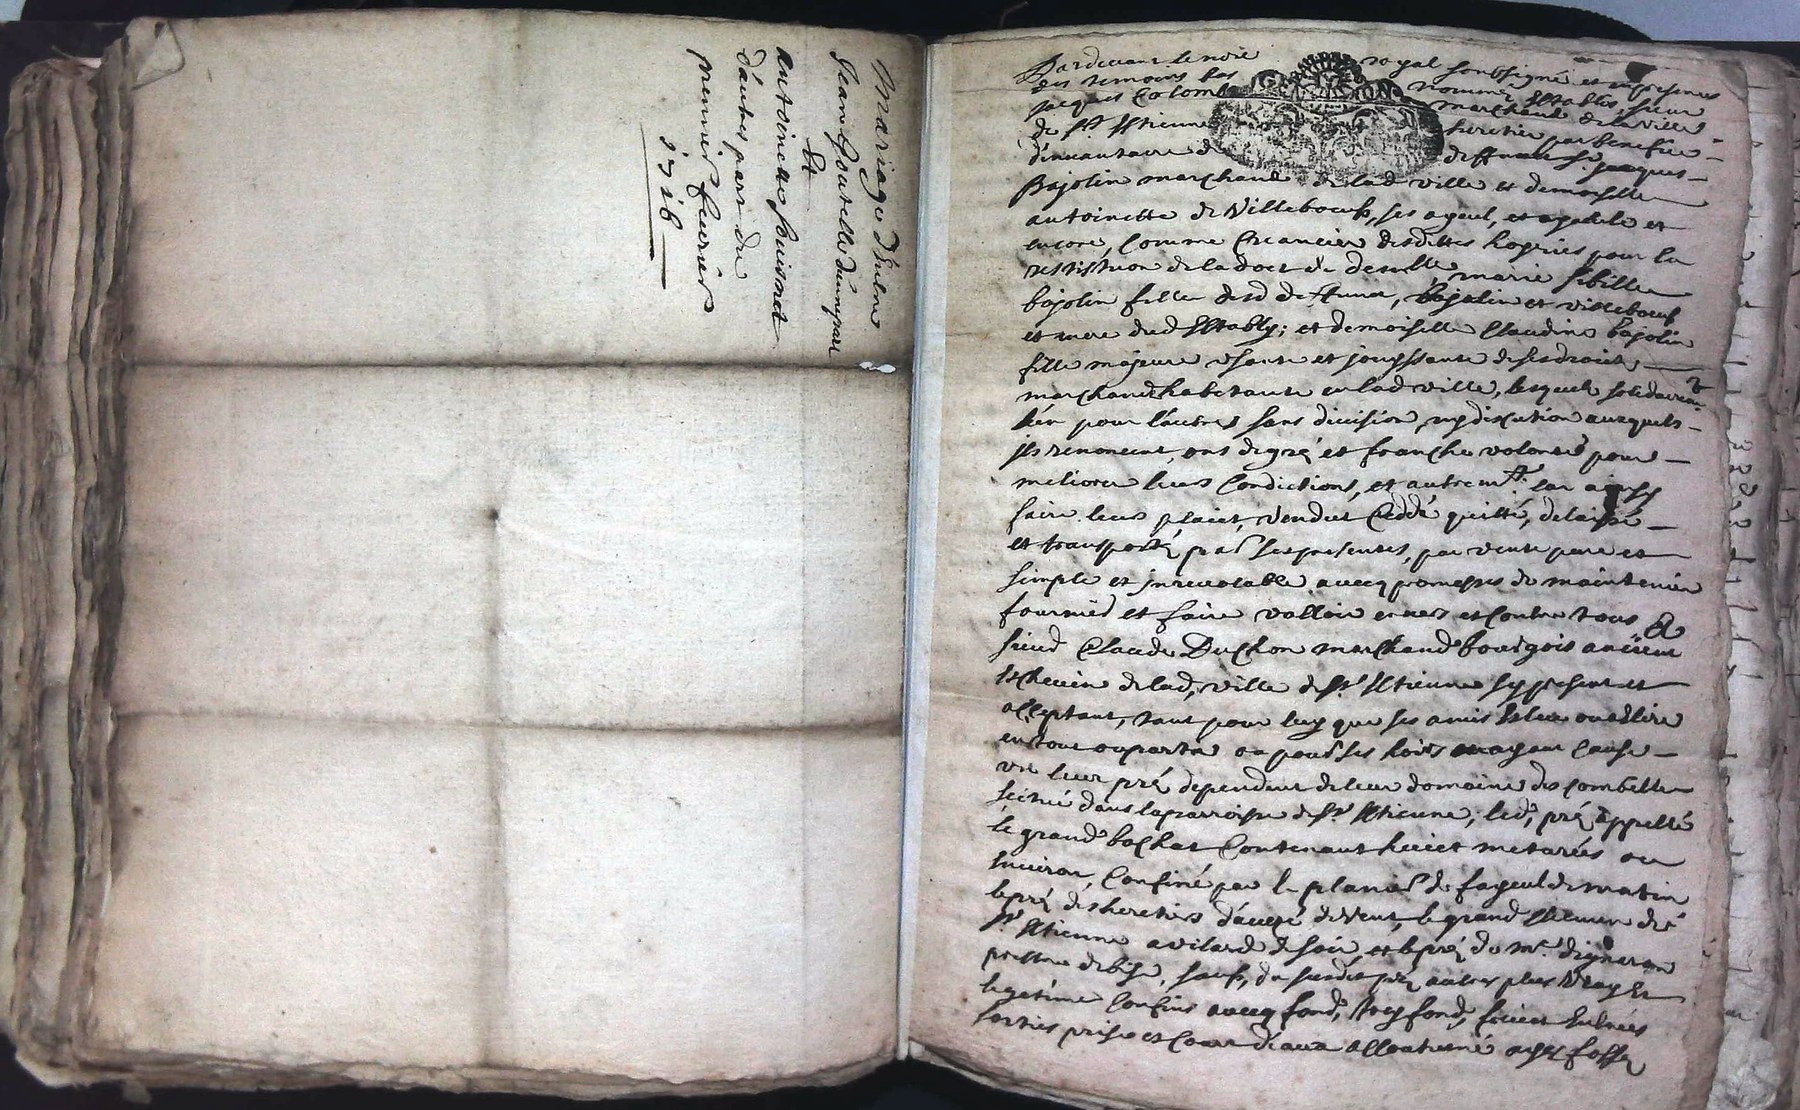 Mariage d'entre
Jean Goutelle d'une part
Et
antoinette
d'autre part du
premier feuvrier
1716
Pardevant le no.re royal soubsigné et en presence
des temoins bas nommés Establis, sieur
Jacques Colomb marchand de la ville
de St. Estienne heretier par benefice
d'inventaire de deffunct Sr. Jacques
Bajolin marchand de lad. ville et demoiselle
antoinette de Villeboeuf, ses ayeul, et ayeulle et
encore, comme Creancier desdittes hoyries pour la
restitution de la doct de demlle marie Sibille
bajolin fille desd. deffunct, Bajolin et villeboeuf
et mere dud. Estably; et demoiselle Claudine bajolin
fille majeure usante et jouyssante de ses droicts
marchande habitante en lad. ville, lesquels solidairem.
l'un pour l'autre sans division, ny discution auxquels
ils renoncent, ont de gré et franche volonté pour
meliorer leurs Condictions, et autrem.t car ainsy
faire leur plaict, vendut Ceddé quitté, delaissé
et transporté par ses presentes, par vente pure et
simple et irrevocable avecq promesses de maintenir
fournir et faire valloir envers et contre tous A
sieur Claude Duchon marchand bourgois ancien
Eschevin de lad. ville de St. Estienne cy present et
acceptant, tant pour luy que ses amis Esleu ou a Eslire
en tout ou partie ou pour ses hoirs ou ayant cause
un leur pré dependent de leur domaine des combelles
scitué dans la parroisse de St. Estienne; led. pré appellé
le grand bachat Contenant huict metarées ou
environ, Confiné par le de fayeul de matin
le pré des heretiers d'avezé de vent, le grand chemin de
St. Estienne a vilard de soir, et le pré de Mr. digneron
prestre de bise, sauf, du susdit pré autres plus vray Et
legetime Confins avecq fond, tresfond, fruict Entrées
sorties prise et Cours d'eaux accoutumé ayses fosses